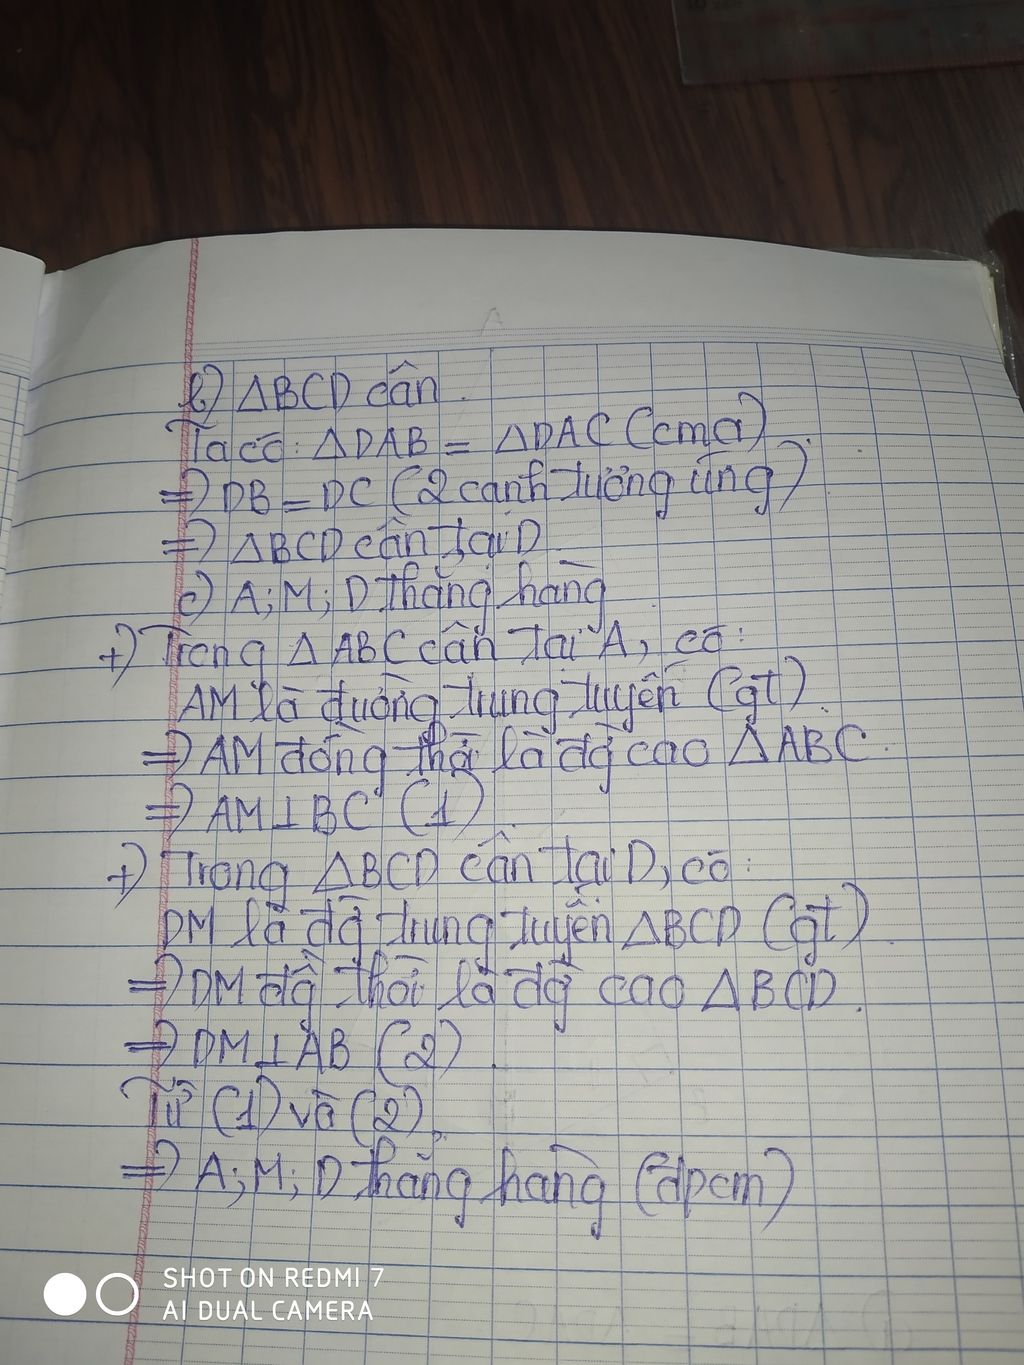 b) ΔBCD cân.
Ta có: ΔDAB = ΔDAC (cma)
=> DB = DC (2 cạnh tương ứng)
=> ΔBCD cân tại D
c) A; M; D thẳng hàng
+) Trong ΔABC cân tại A, có:
AM là đường trung tuyến (gt).
=> AM đồng thời là đg cao ΔABC.
=> AM ⊥ BC (1).
+) Trong ΔBCD cân tại D, có:
DM là đg trung tuyến ΔBCD (gt).
=> DM đg thời là đg cao ΔBCD.
=> DM ⊥ AB (2).
Từ (1) và (2),
=> A; M; D thẳng hàng (đpcm)
SHOT ON REDMI 7
AI DUAL CAMERA